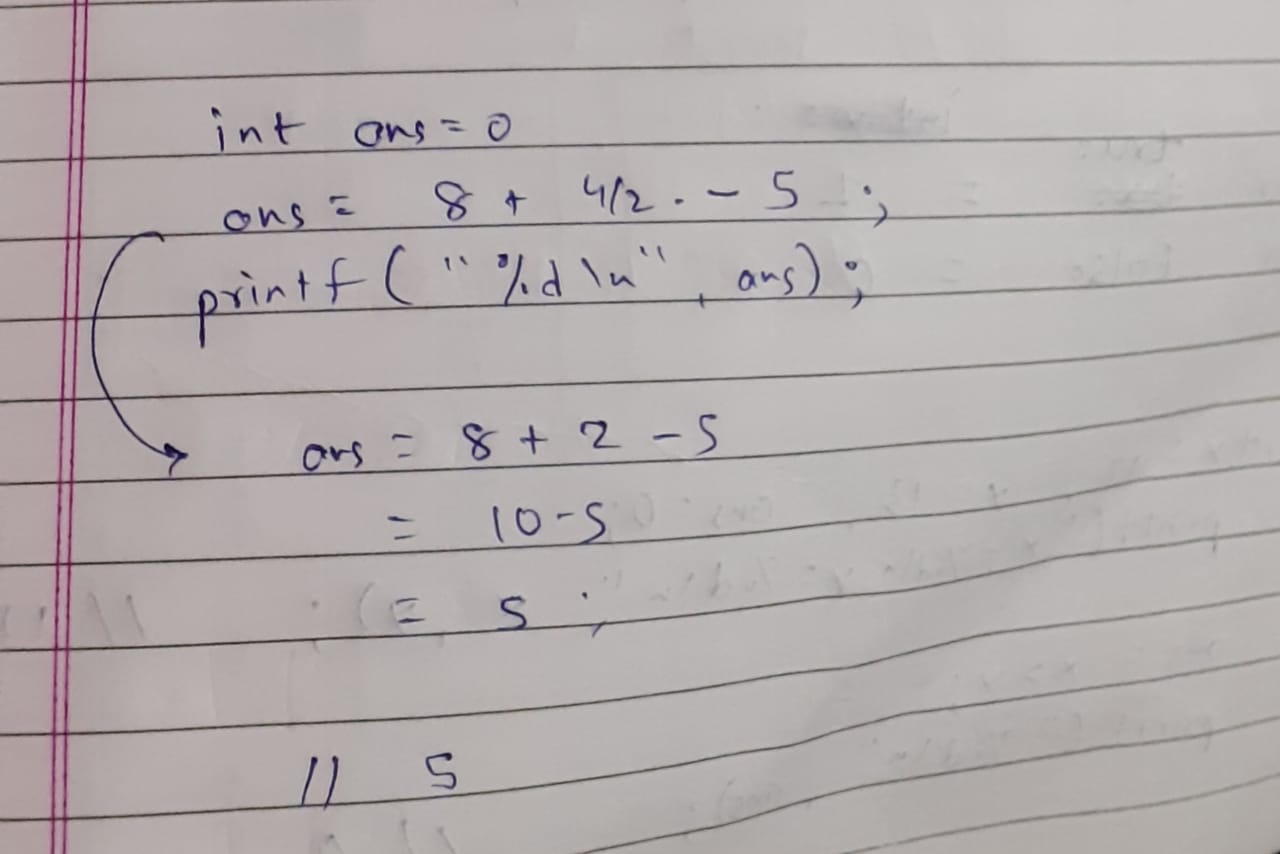 int ans = 0
ans = 8 + 4/2 . - 5 ;
printf ( "%d \n" , ans) ;
ans = 8 + 2 - 5
= 10 - 5
= 5 ;
// 5